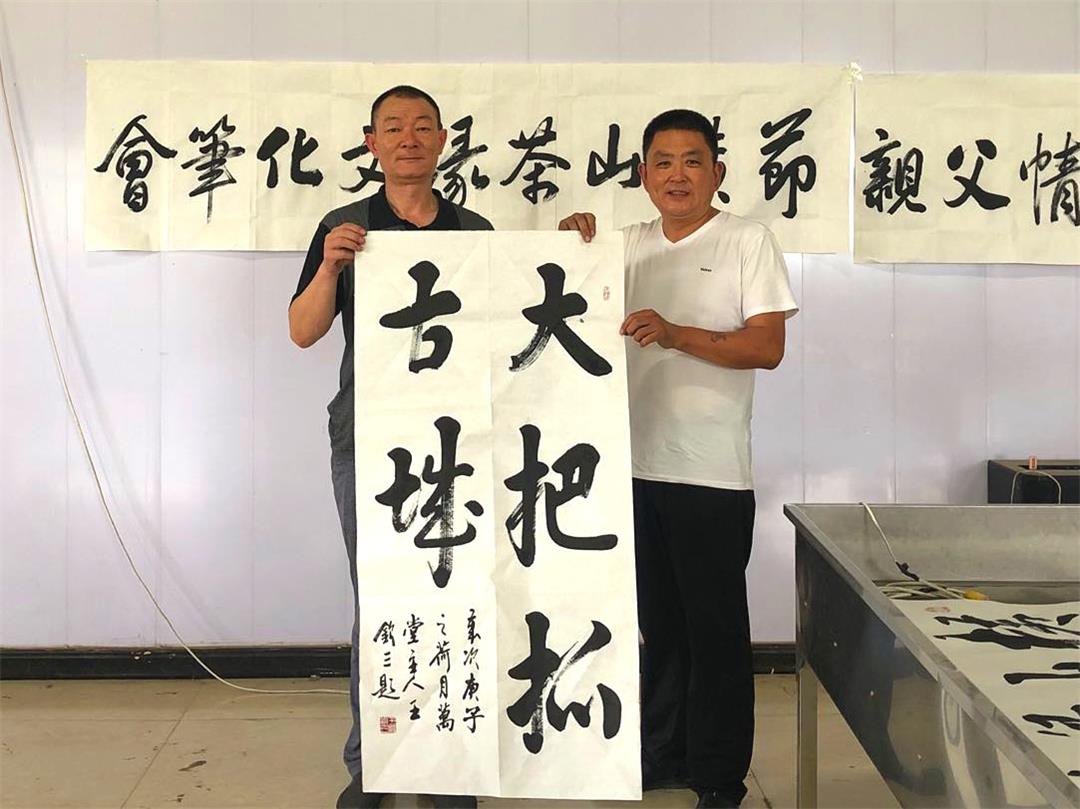 情父親
節山茶文化筆會
大把抓
古城
歲次庚子
之荷月萬
堂主人王
欽三題